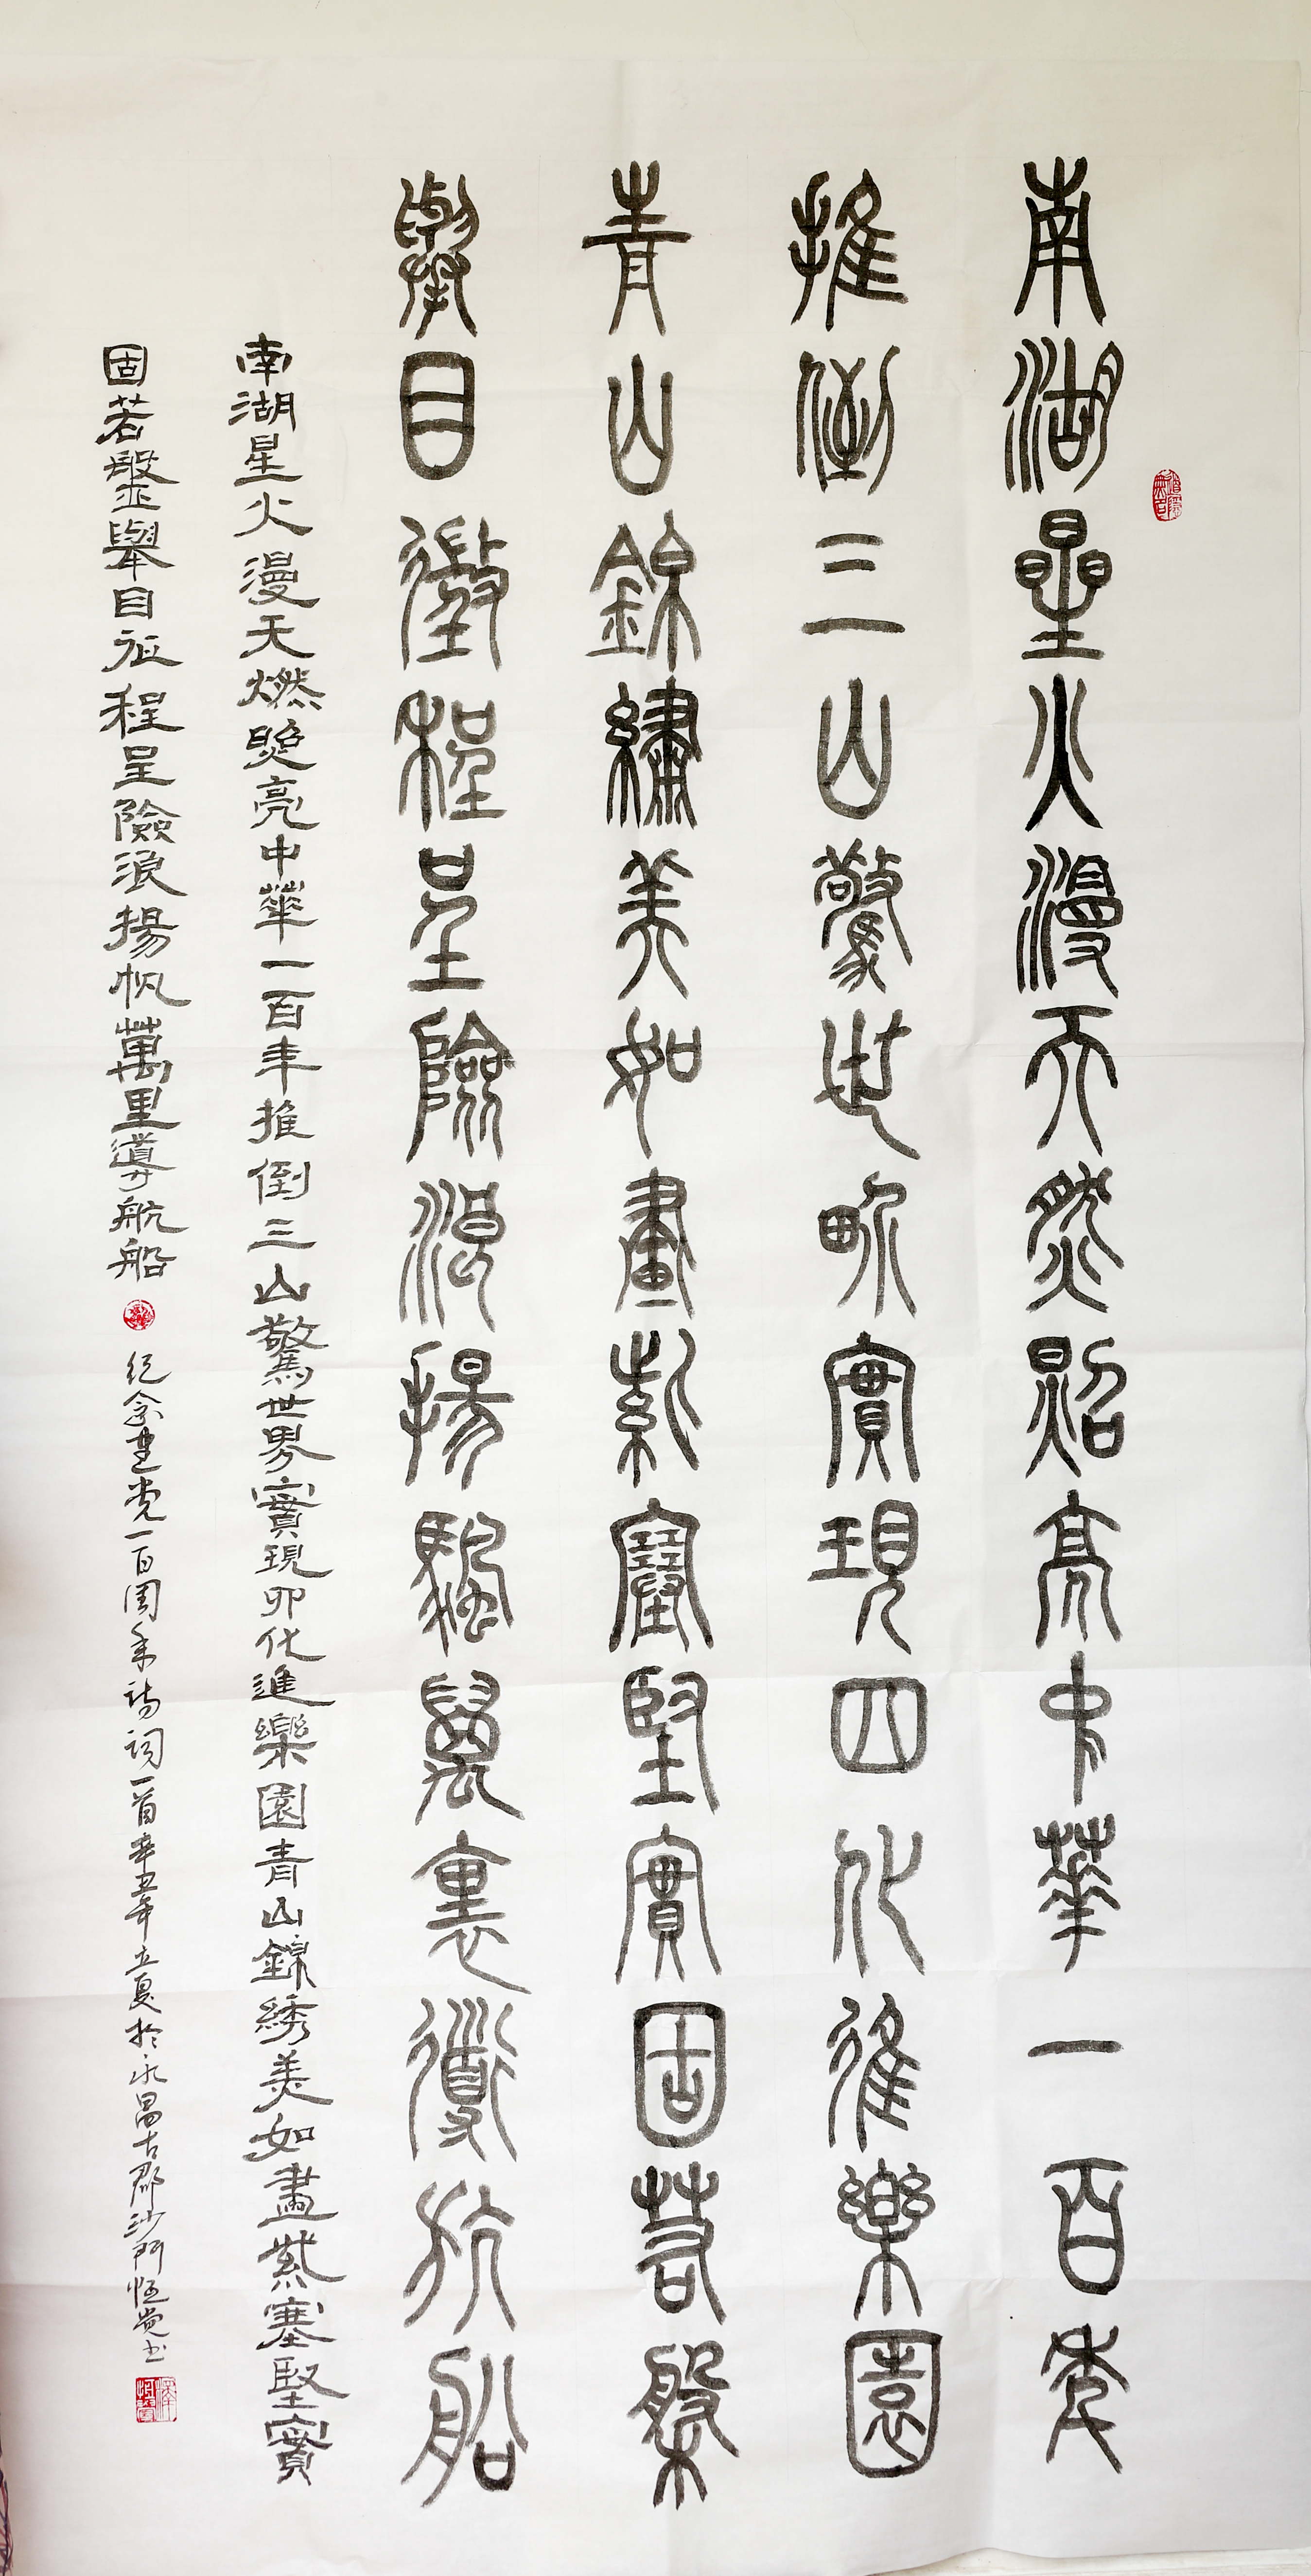 南湖星火漫天燃照亮中華一百年
推倒三山驚世界實現四化進樂園
青山錦繡美如畫紫塞堅實固若磐
舉目徵程呈險浪揚帆萬里導航船
南湖星火漫天燃照亮中華一百年推倒三山驚世界實現四化進樂園青山錦綉美如畫紫塞堅實
固若盤舉目征程呈險浪揚帆萬里導航船
纪念建党一百周年诗词一首辛丑年立夏於永昌古郡沙門恆觉书